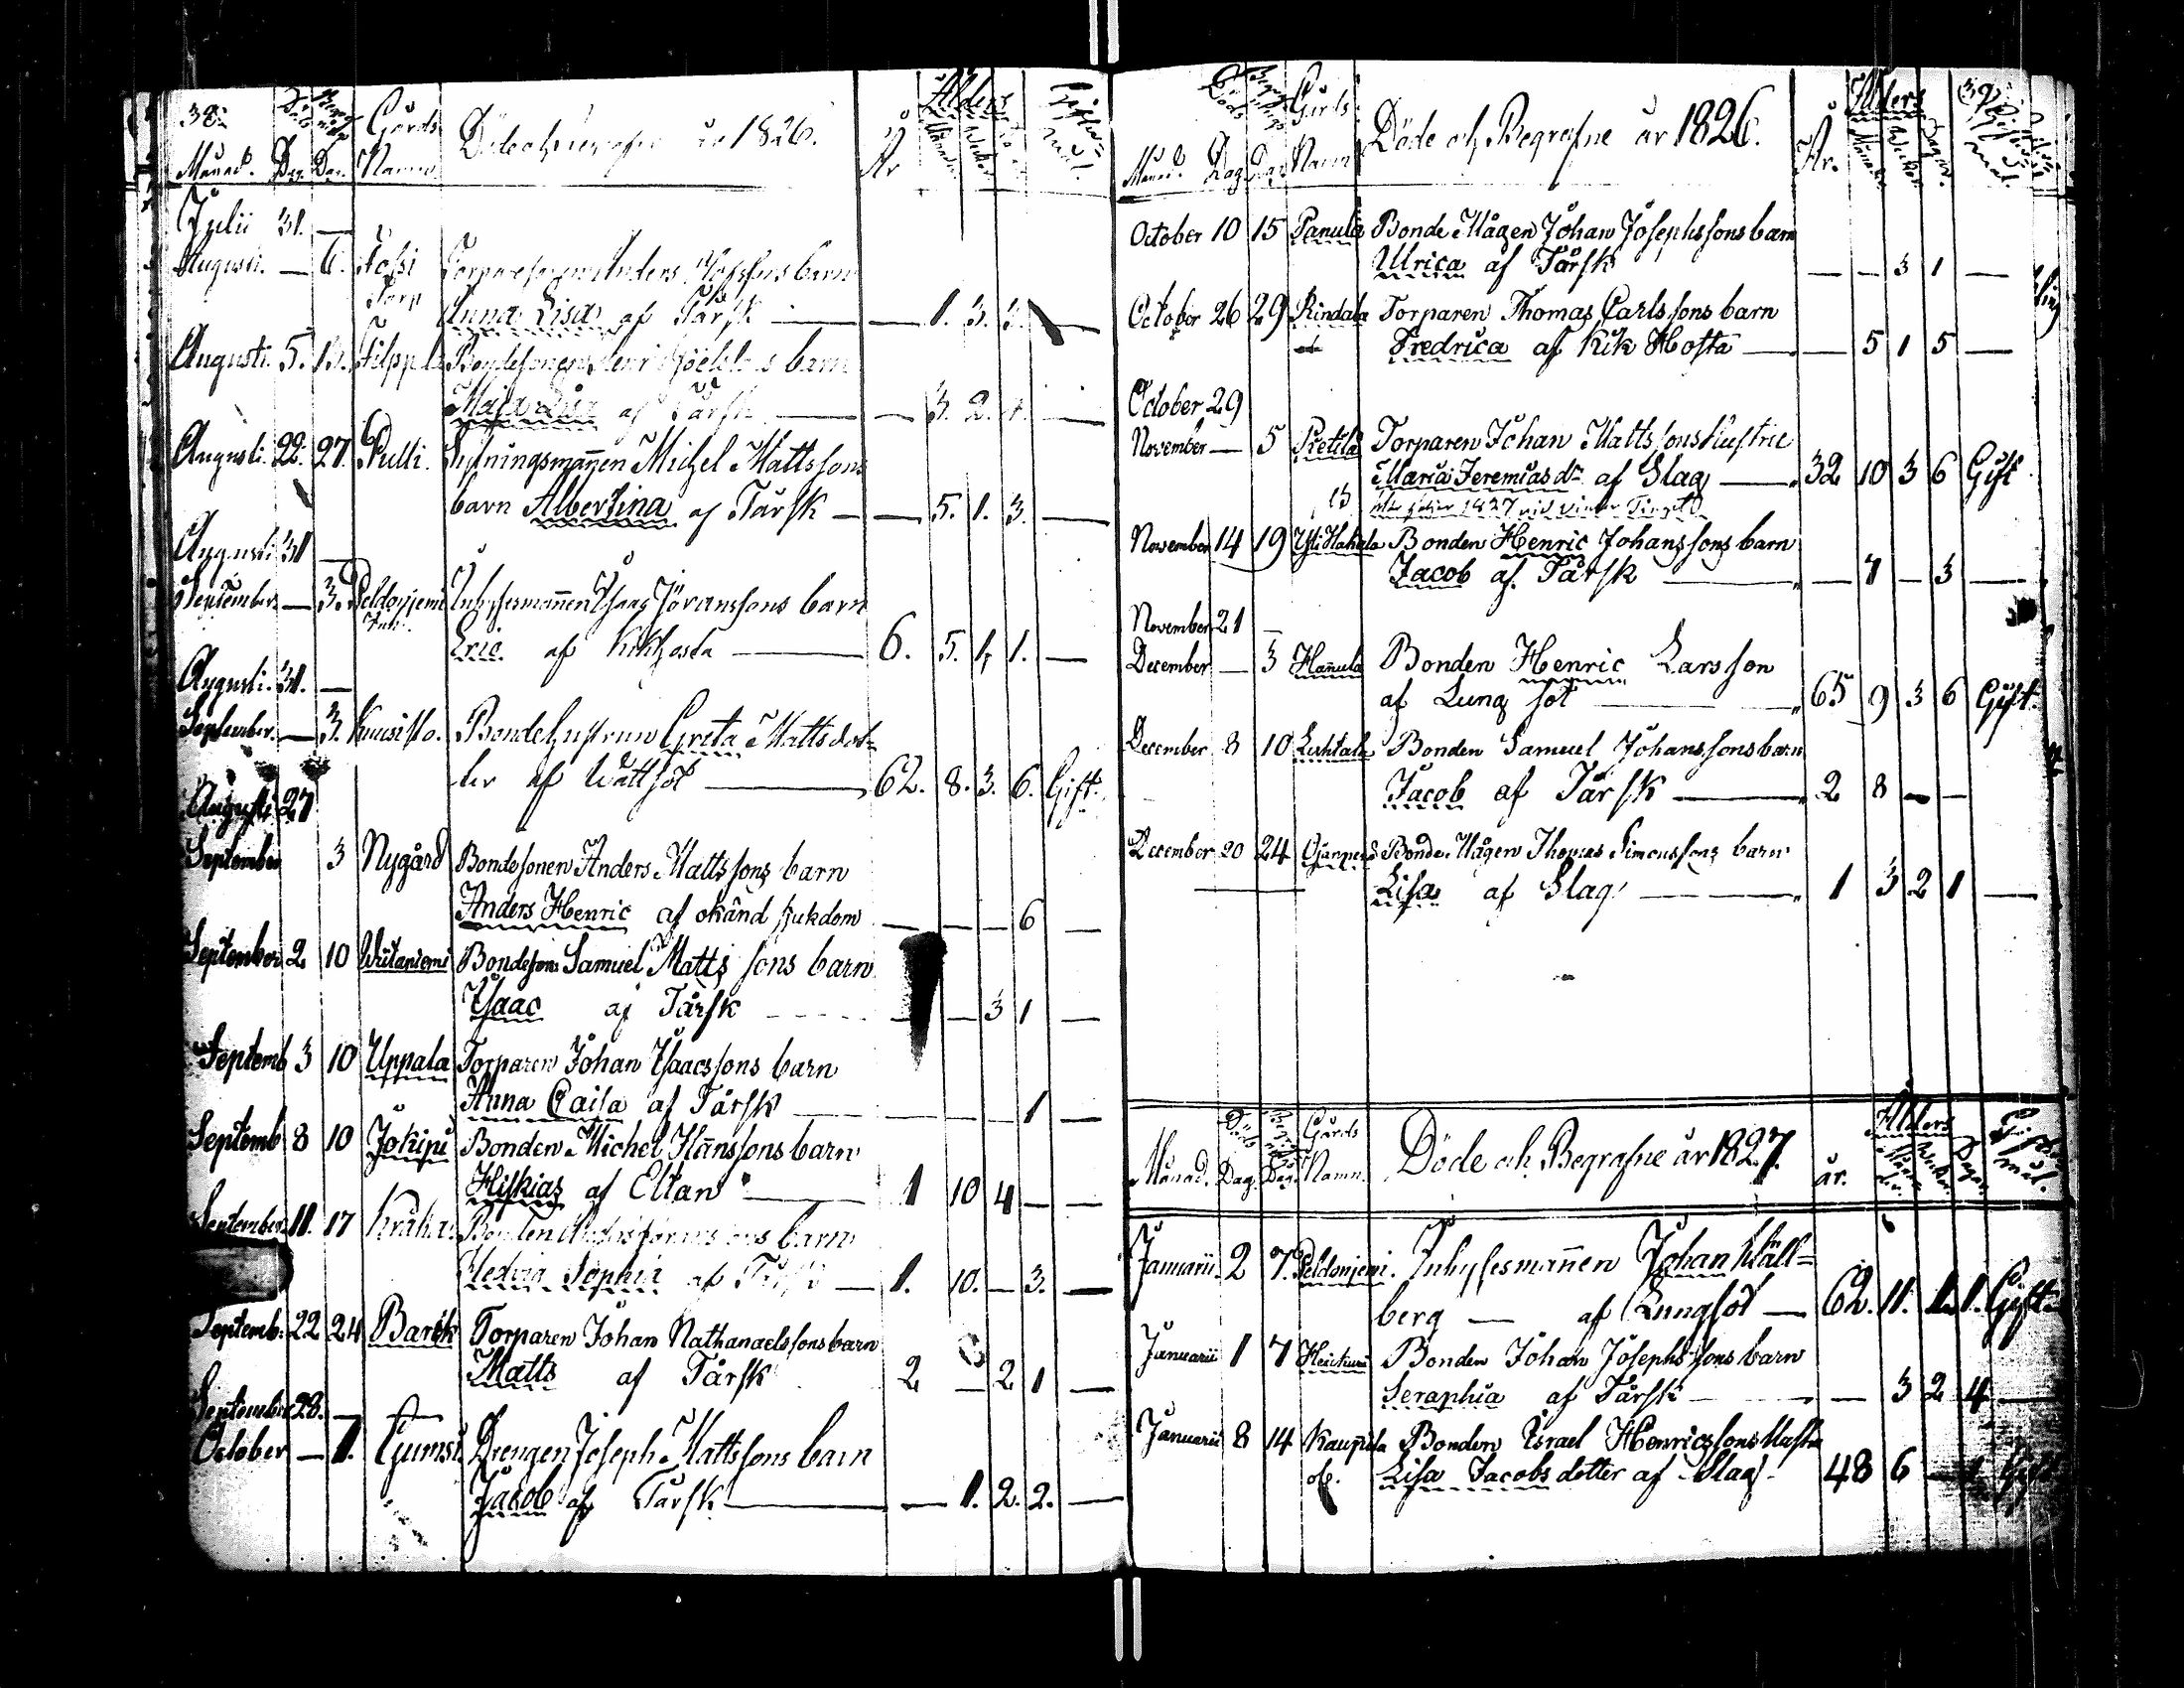 38. Döds Gårds Döde och Begrafne år 1826. Ålders
Månad. Dag. Dag. Namn År
Julii 31. —
Augusti. — 6. Anders barn
Torp Anna Lisa af Tårsk — — 1. 3. 3. —
Augusti. 5. 13. Filppula Bondesonens barn
Maja Lisa af Tårsk — — 3. 2. 4. —
Augusti. 22. 27. Pulli. Michel Mattssons
barn Albertina af Tårsk — — 5. 1. 3. —
Augusti 31 —
September — 3. Peldoniemi Inhysesmannen Isaac Göranssons barn
Eric af Kikhosta — 6. 5. 1. 1. —
Augusti. 31. —
September. — 3. Kuusisto. Bondehustrun Greta Mattsdot=
ter af Wattsot — 62. 8. 3. 6. Gift.
Augusti 27
September 3 Nygård Bondesonen Anders Mattssons barn
Anders Henric af okänd sjukdom — — — 6 —
September 2 10 Wiitaniemi Bondeson Samuel Matts sons barn
Isaac af Tårsk — — 3 1 —
Septemb 3 10 Uppala Torparen Johan Isaacssons barn
Anna Caisa af Tårsk — 1 —
Septemb 8 10 Jokipii Bonden Michel Hanssons barn
Hiskias af Eltan — 1 10 4 — —
September 11. 17 barn
Hedvig Sophia af Tårsk — 1. 10. — 3. —
Septemb. 22 24 Barck Torparen Johan Nathanaelssons barn
Matts af Tårsk 2 — 2 1 —
September 28. —
October — 1. Drengen Joseph Mattssons barn
Jacob af Tårsk — — 1. 2. 2. —
Döds Begrafnings Gårds Döde och Begrafne år 1826. Ålders 39
Månad. Dag Dag Namn År. Månader Wekor Dagar.
October 10 15 Panula Bonde Mågen Johan Josephssons barn
Ulrica af Tårsk — — 3 1 —
October 26 29 Rindala Torparen Thomas Carlssons barn
Fredrica af Kik Hosta — — 5 1 5 —
October 29
November — 5 Pietilä Torparen Johan Mattssons Hustru
Maria Jeremias dr af Slag — 32 10 3 6 Gift
November 14 19 Yli Hakala Bonden Henric Johanssons barn
Jacob af Tårsk — — 7 — 3 —
November 21 —
December — 3 Hannula Bonden Henric Larsson
af Lung sot — 65 9 3 6 Gift.
December 8 10 Luhtala Bonden Samuel Johanssons barn
Jacob af Tårsk — 2 8 — —
December 20 24 Ojanperä Bonde Mågen Thomas Simonssons barn
Lisa af Slag — 1 3 2 1 —
Döds Gårds Döde och Begrafne år 1827. Ålders
Månad. Dag. Dag. Namn. år.
Januarii. 2 7. Peldoniemi. Inhysesmannen Johan Wäll=
berg — af Lungsot — 62. 11. 1. 1. Gift
Januarii 1 7 Bonden Johan Josephssons barn
Seraphia af Tårsk — — 3 2 4 —
Januarii 8 14 Kauppila Bonden Israel Henricssons Hustru
Lisa Jacobs dotter af Slag 48 6 — 1 Gift